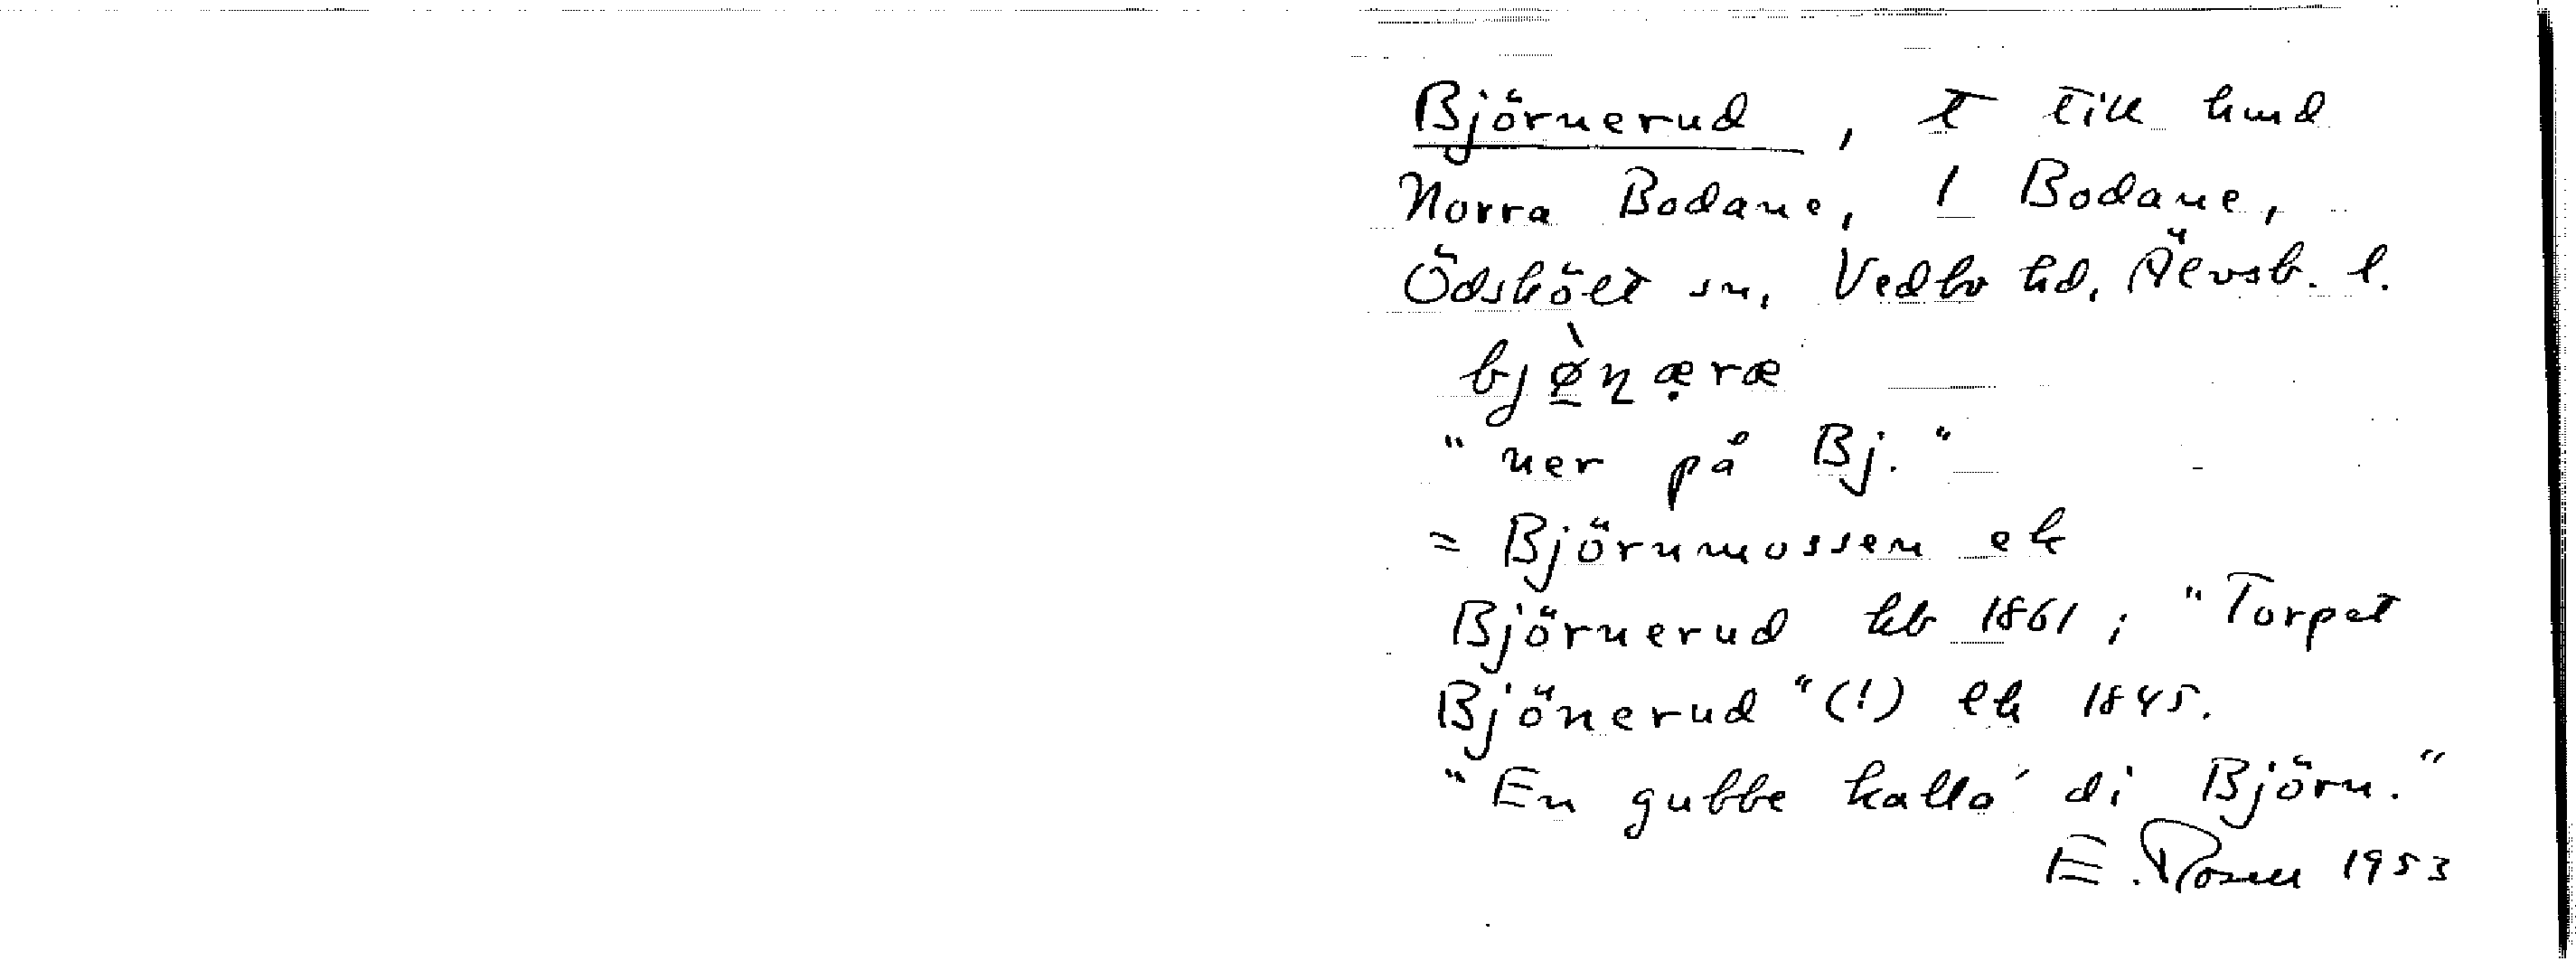 Björnerud, t till hmd
Norra Bodane, 1 Bodane,
Ödskölt sn, Vedbo hd, Älvsb. l.
bjø̀ɳæ̣ræ
"ner på Bj."
= Björnmossen ek
Björnerud hb 1861; "Torpet
Bjönerud" (!) lh 1845.
"En gubbe kalla' di Björn."
E. Rosell 1953